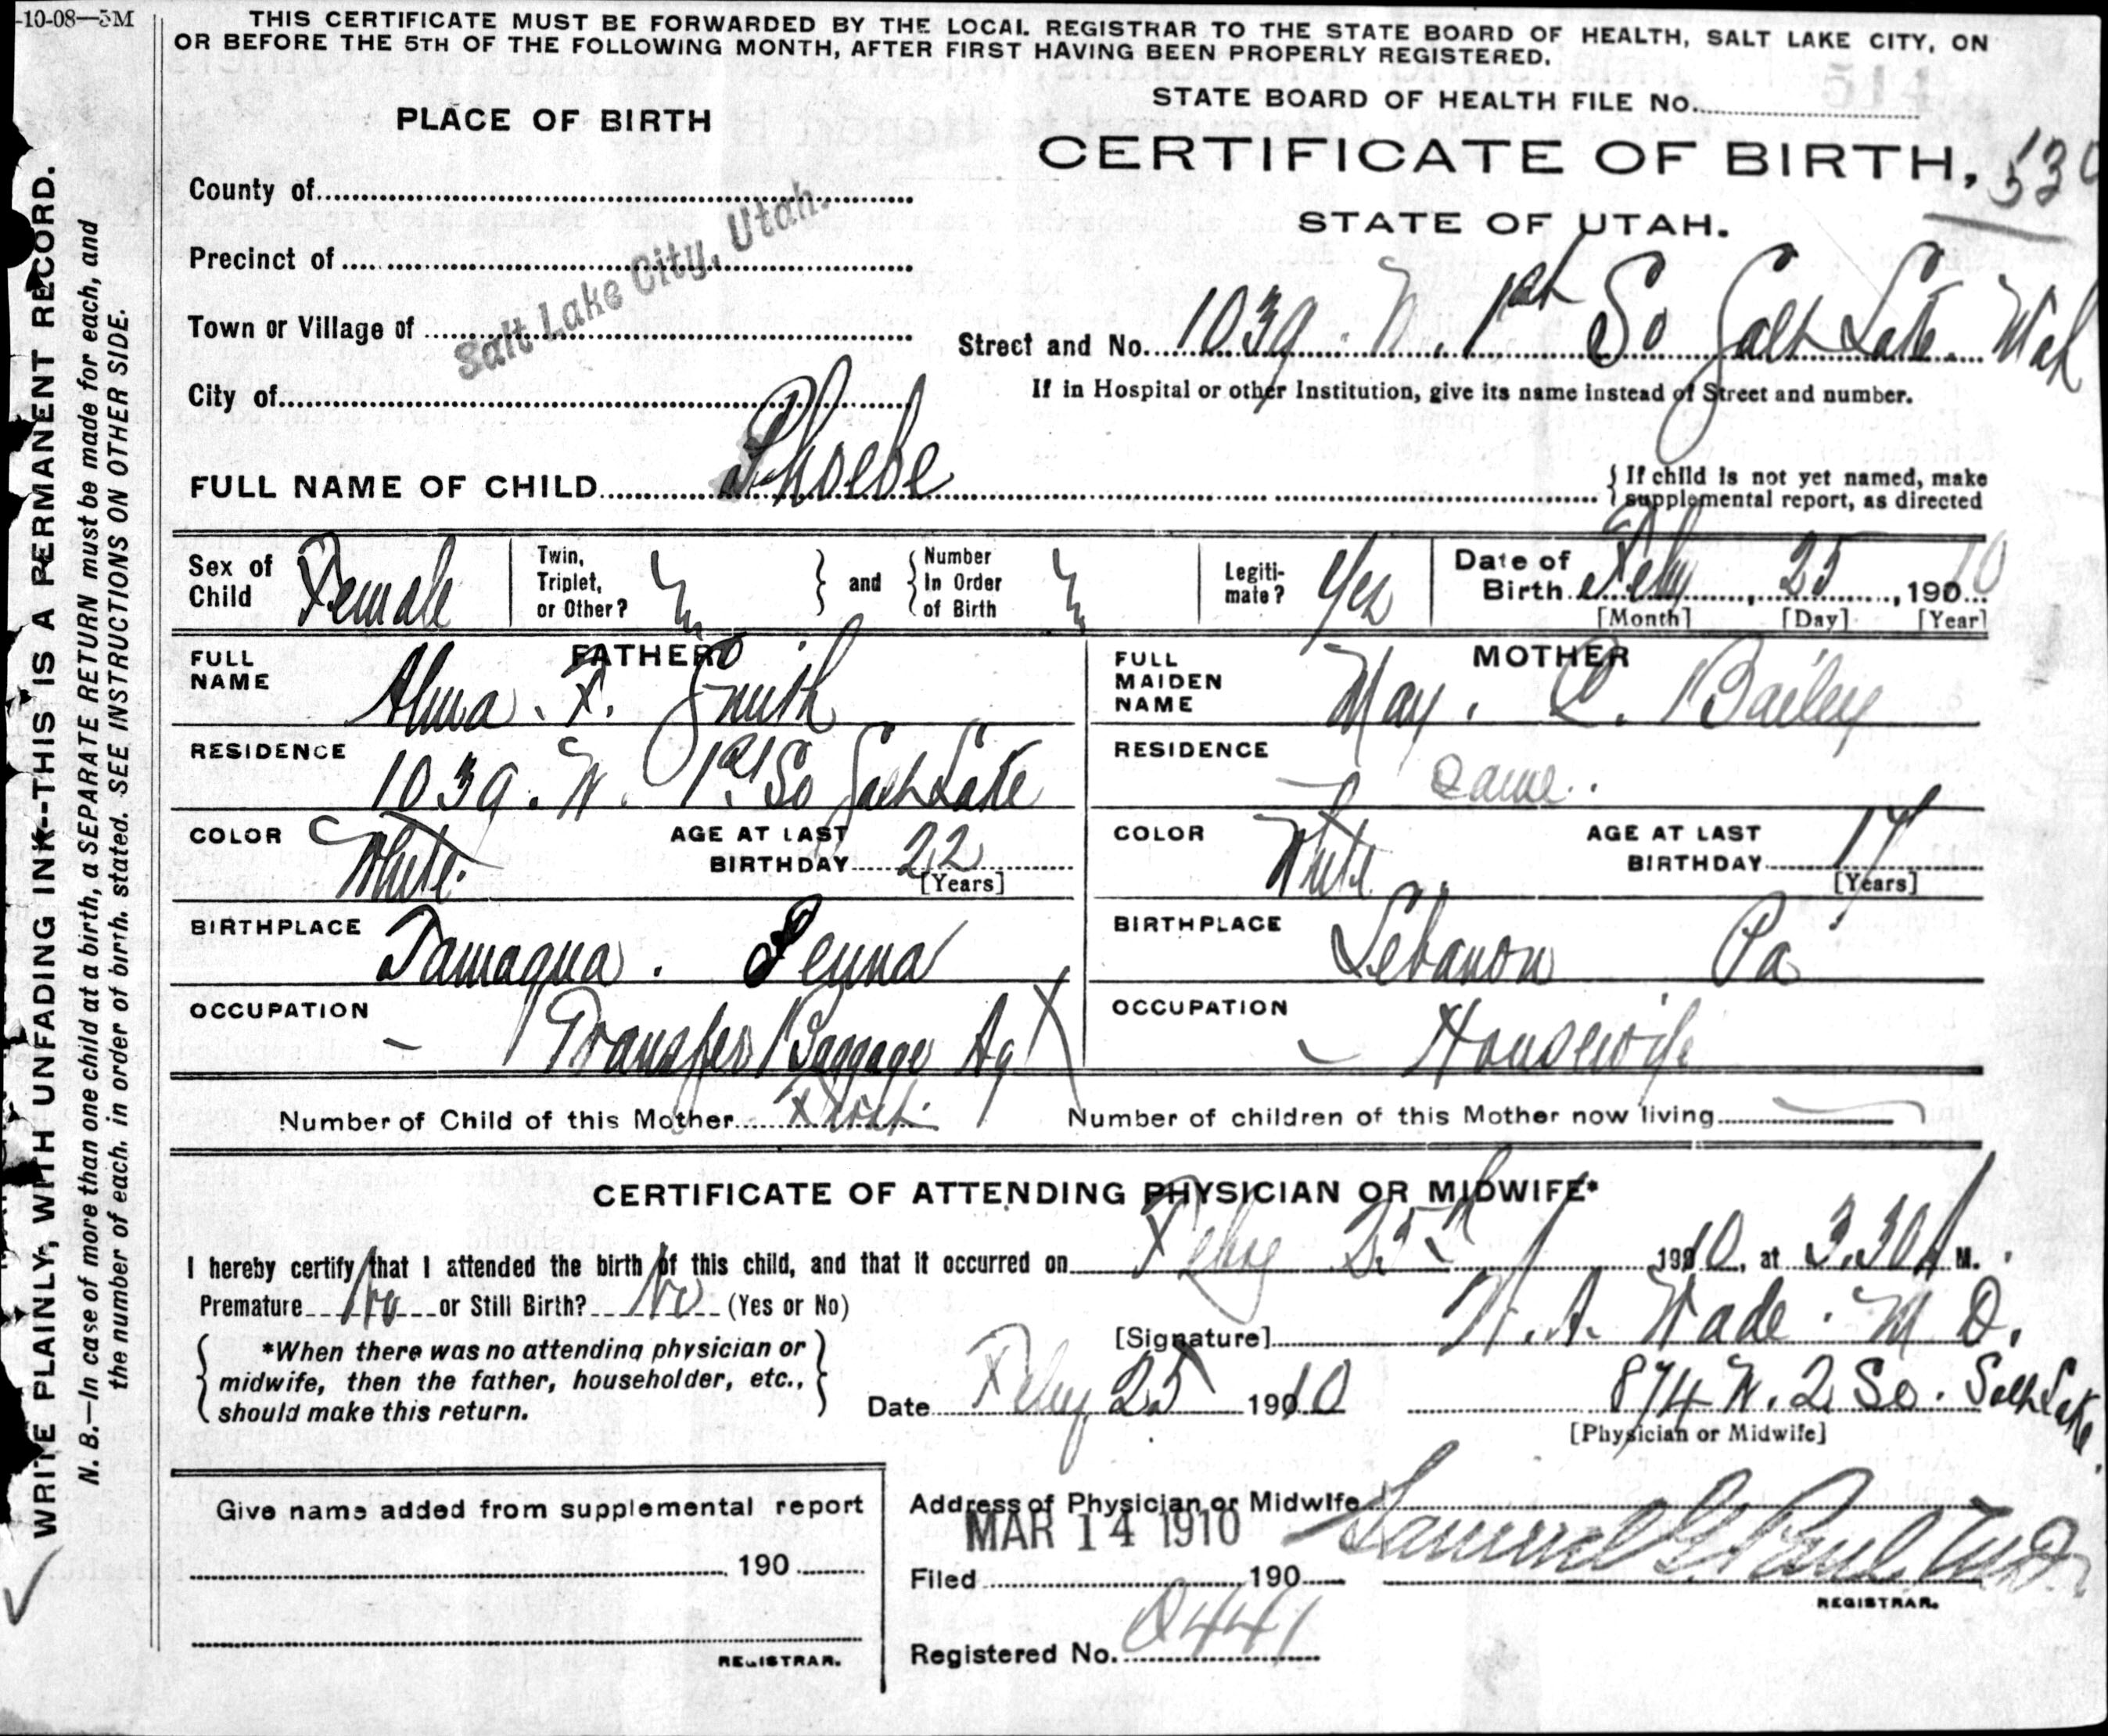 -10-08—5M
THIS CERTIFICATE MUST BE FORWARDED BY THE LOCAL REGISTRAR TO THE STATE BOARD OF HEALTH, SALT LAKE CITY, ON
OR BEFORE THE 5TH OF THE FOLLOWING MONTH, AFTER FIRST HAVING BEEN PROPERLY REGISTERED.
WRITE PLAINLY, WITH UNFADING INK--THIS IS A PERMANENT RECORD.
N. B.—In case of more than one child at a birth, a SEPARATE RETURN must be made for each, and
the number of each, in order of birth, stated. SEE INSTRUCTIONS ON OTHER SIDE.
STATE BOARD OF HEALTH FILE NO.
PLACE OF BIRTH
CERTIFICATE OF BIRTH,
STATE OF UTAH.
County of
Precinct of
Town or Village of
Salt Lake City, Utah.
City of
Street and No. 1039. W. 1st So Salt Lake. Utah
If in Hospital or other Institution, give its name instead of Street and number.
FULL NAME OF CHILD Phoebe
{If child is not yet named, make
supplemental report, as directed
Sex of Child Female
Twin, Triplet, or Other?
} and {
Number In Order of Birth
Legiti-mate? Yes
Date of Birth Feby 25, 190 10
[Month] [Day] [Year]
FATHER
FULL NAME Alma. F. Smith
MOTHER
FULL MAIDEN NAME May. C. Bailey
RESIDENCE 1039. W. 1st So Salt Lake
RESIDENCE Same.
COLOR White.
AGE AT LAST BIRTHDAY 22
[Years]
COLOR White
AGE AT LAST BIRTHDAY
[Years]
BIRTHPLACE Tamaqua. Penna
BIRTHPLACE Lebanon Pa
OCCUPATION – Transfer Baggage Ag X
OCCUPATION Housewife
Number of Child of this Mother First.
Number of children of this Mother now living
CERTIFICATE OF ATTENDING PHYSICIAN OR MIDWIFE*
I hereby certify that I attended the birth of this child, and that it occurred on Feby 25th 1910, at 3.30 A M.
Premature No or Still Birth? No (Yes or No)
[Signature] W. A. Wade. M D.
{ *When there was no attending physician or
midwife, then the father, householder, etc.,
should make this return. }
Date Feby 25 1910
874 W. 2 So. Salt Lake.
[Physician or Midwife]
Give name added from supplemental report
190
REGISTRAR.
Address of Physician or Midwife
MAR 14 1910
Filed 190
Samuel G. Paul, M.D.
REGISTRAR.
Registered No. 0441